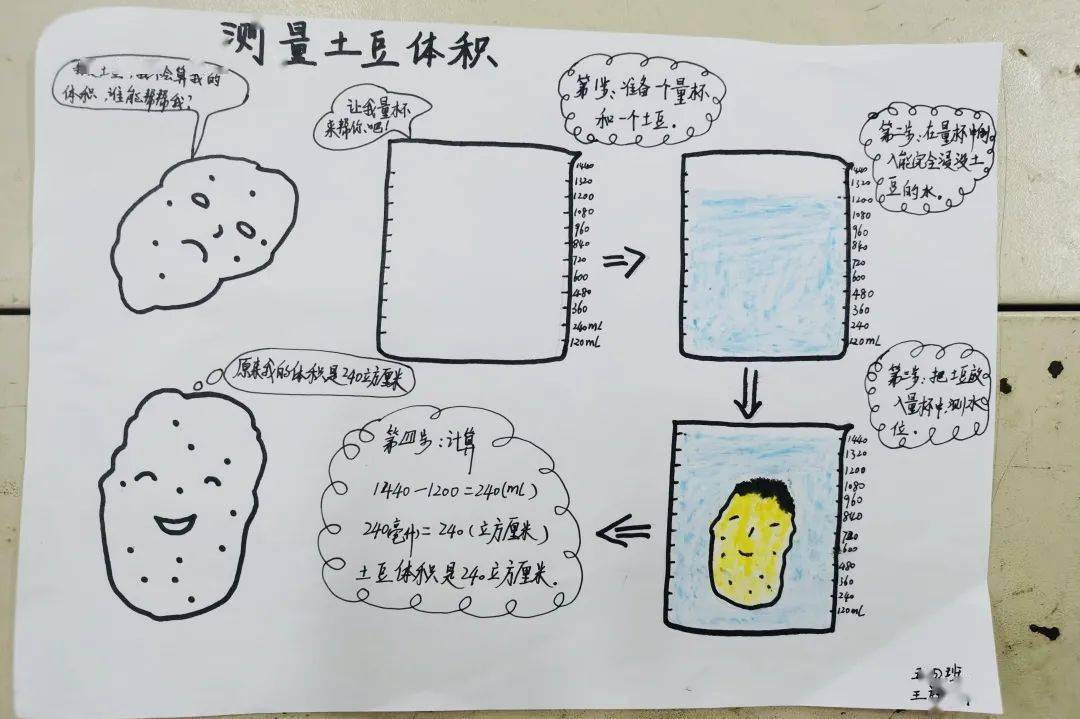 测量土豆体积
土豆,我 会算我的
体积,谁能帮帮我?
让我量杯
来帮你吧!
第1步:准备个量杯
和一个土豆.
1440
1320
1200
1080
960
840
720
600
480
360
240mL
120mL
第二步:在量杯中倒
入能完全浸没土
豆的水.
1440
1320
1200
1080
960
840
720
600
480
360
240
120mL
第三步:把土豆放
入量杯中,测水
位.
1440
1320
1200
1080
960
840
720
600
480
360
240
120mL
第四步:计算
1440-1200=240(mL)
240毫升=240(立方厘米)
土豆体积是240立方厘米.
原来我的体积是240立方厘米
班
王